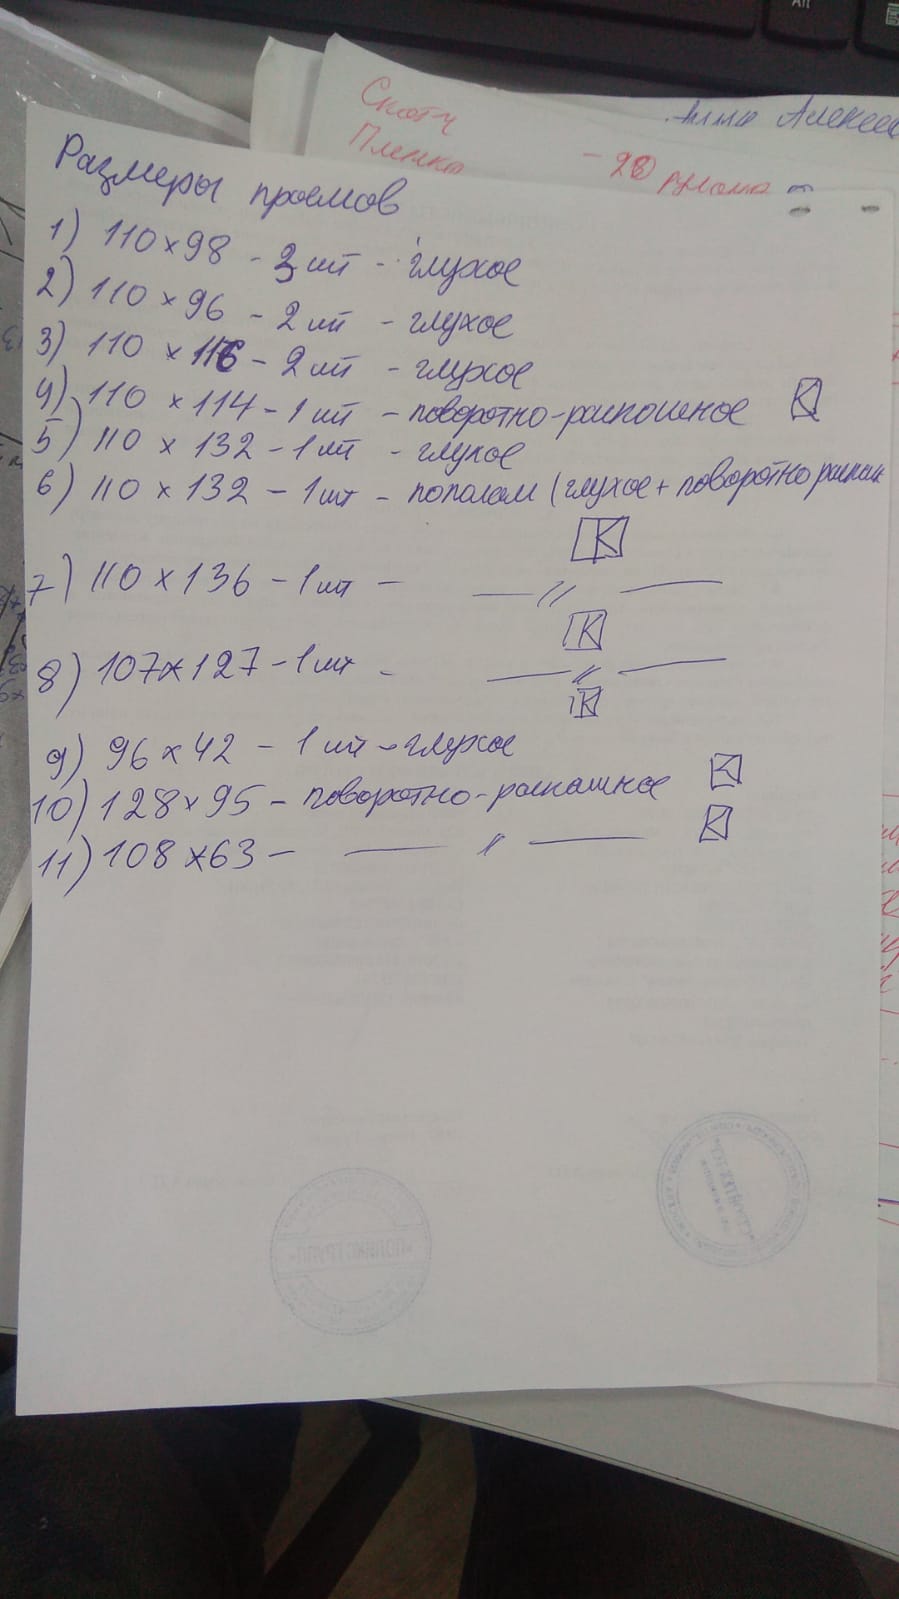 Alt
Скотч
Пленка
- 28 рулона
Размеры проемов
1) 110 x 98 - 3 шт - глухое
2) 110 x 96 - 2 шт - глухое
3) 110 x 116 - 2 шт - глухое
4) 110 x 114 - 1 шт - поворотно-распошное
5) 110 x 132 - 1 шт - глухое
6) 110 x 132 - 1 шт - пополам (глухое + поворотно
7) 110 x 136 - 1 шт - — // —
8) 107 x 127 - 1 шт - — // —
9) 96 x 42 - 1 шт - глухое
10) 128 x 95 - поворотно-распашное
11) 108 x 63 - — // —